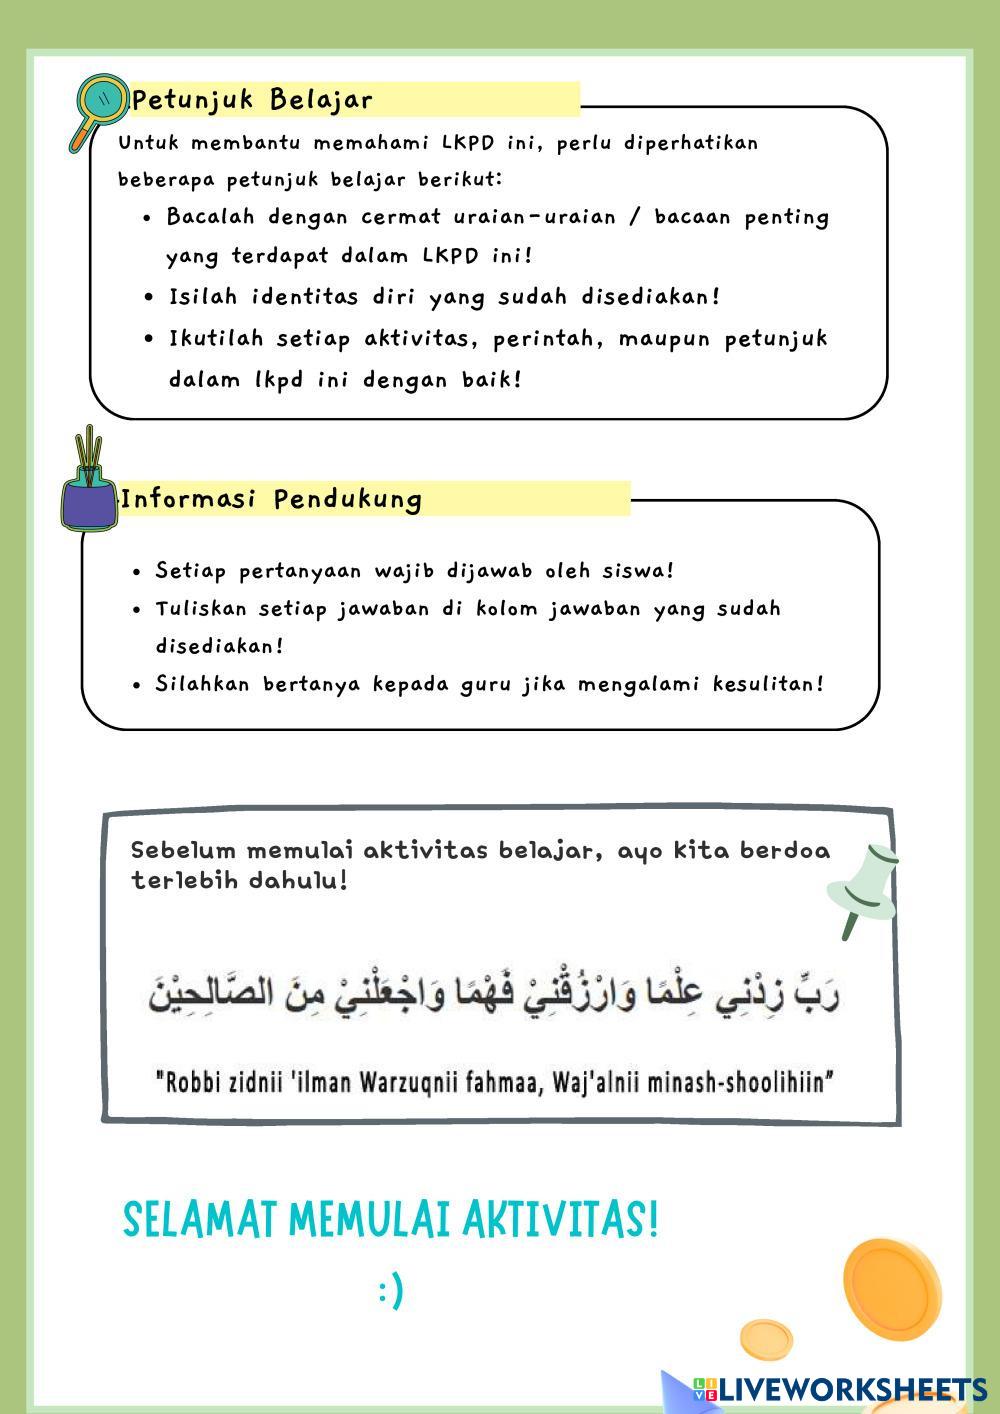 Petunjuk Belajar
Untuk membantu memahami LKPD ini, perlu diperhatikan
beberapa petunjuk belajar berikut:
• Bacalah dengan cermat uraian-uraian / bacaan penting
yang terdapat dalam LKPD ini!
• Isilah identitas diri yang sudah disediakan!
• Ikutilah setiap aktivitas, perintah, maupun petunjuk
dalam lkpd ini dengan baik!
Informasi Pendukung
• Setiap pertanyaan wajib dijawab oleh siswa!
• Tuliskan setiap jawaban di kolom jawaban yang sudah
disediakan!
• Silahkan bertanya kepada guru jika mengalami kesulitan!
Sebelum memulai aktivitas belajar, ayo kita berdoa
terlebih dahulu!
رَبِّ زِدْنِي عِلْمًا وَارْزُقْنِيْ فَهْمًا وَاجْعَلْنِيْ مِنَ الصَّالِحِيْنَ
"Robbi zidnii 'ilman Warzuqnii fahmaa, Waj'alnii minash-shoolihiin”
SELAMAT MEMULAI AKTIVITAS!
:)
LIVE LIVEWORKSHEETS